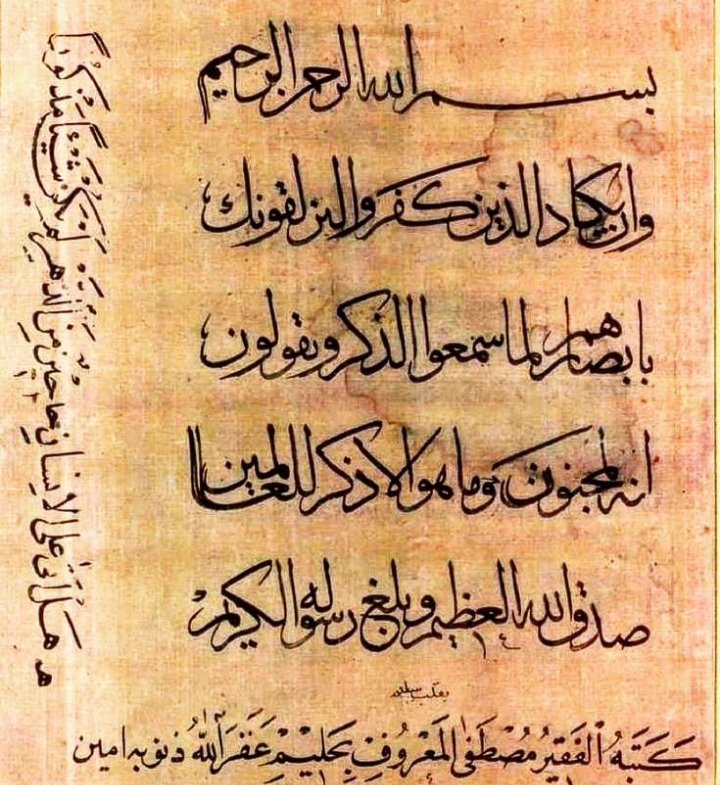 بسم الله الرحمن الرحيم
وان يكاد الذين كفروا ليزلقونك
بابصارهم لما سمعوا الذكر ويقولون
انه لمجنون وما هو الا ذكر للعالمين
صدق الله العظيم وبلغ رسوله الكريم
بقلب سليم
كَتَبَهُ الْفَقِيرُ مُصْطَفٰى الْمَعْرُوفِ بِحَلِيمْ غَفَرَ اللهُ ذنوبه امين
هَلْ اَتٰى عَلَى الاِنسَانِ حِينٌ مِنَ الدَّهْرِ لَمْ يَكُنْ شَيْئًا مَذْكُورًا